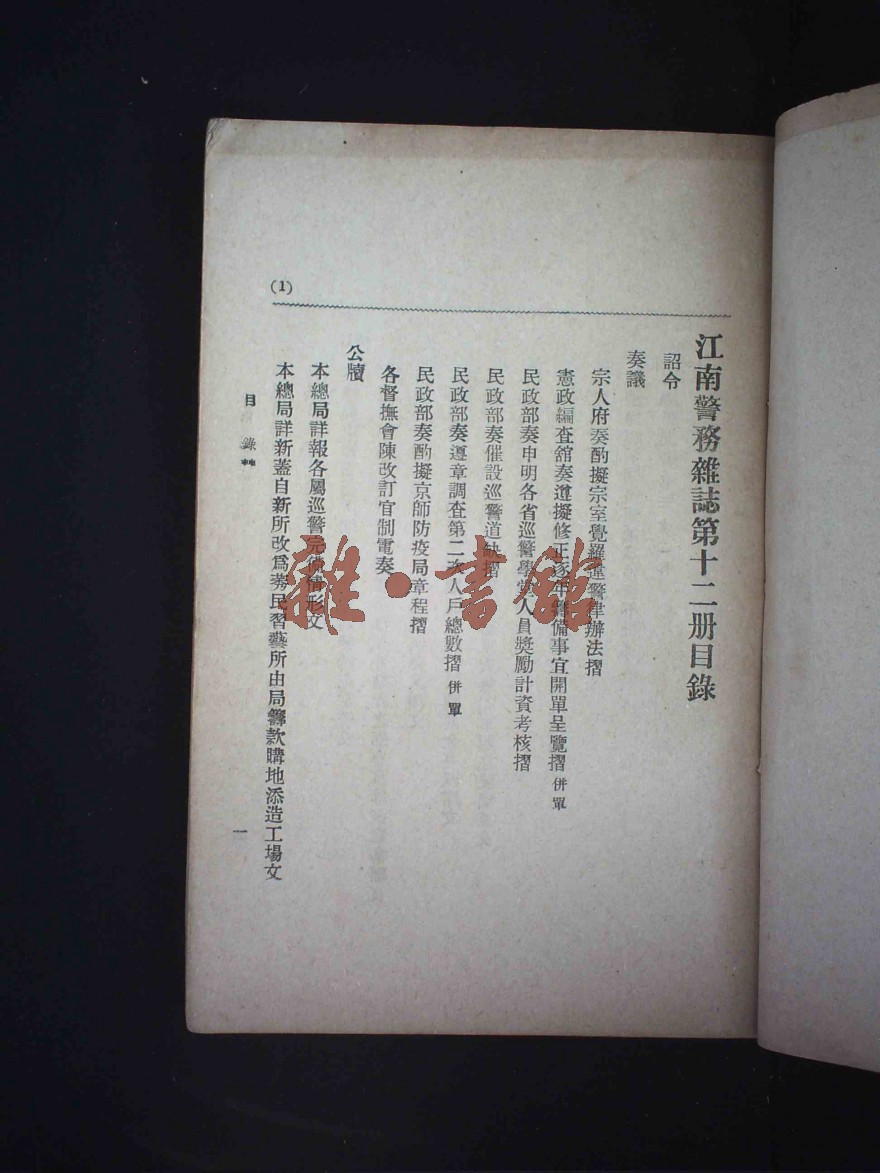 江南警務雜誌第十二册目錄
詔令
奏議
宗人府奏酌擬宗室覺羅違警律辦法摺
憲政編查舘奏遵擬修正逐年籌備事宜開單呈覽摺 併單
民政部奏申明各省巡警學堂人員奬勵計資考核摺
民政部奏催設巡警道缺摺
民政部奏遵章調查第二次人戶總數摺 併單
民政部奏酌擬京師防疫局章程摺
各督撫會陳改訂官制電奏
公牘
本總局詳報各屬巡警完備情形文
本總局詳新蓋自新所改爲莠民習藝所由局籌款購地添造工場文
目錄
一
(1)
雜·書館